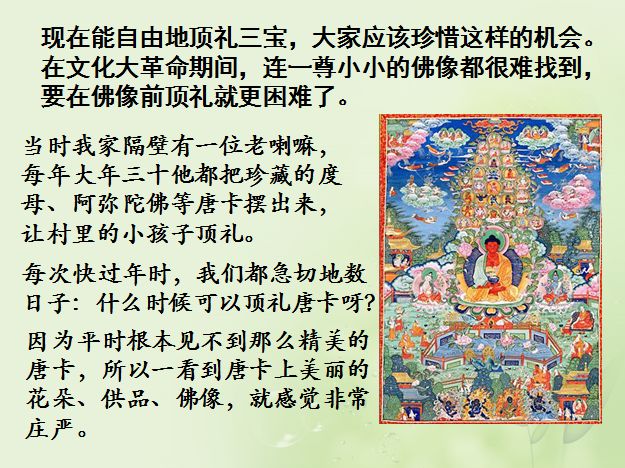 现在能自由地顶礼三宝，大家应该珍惜这样的机会。
在文化大革命期间，连一尊小小的佛像都很难找到，
要在佛像前顶礼就更困难了。
当时我家隔壁有一位老喇嘛，
每年大年三十他都把珍藏的度
母、阿弥陀佛等唐卡摆出来，
让村里的小孩子顶礼。
每次快过年时，我们都急切地数
日子：什么时候可以顶礼唐卡呀?
因为平时根本见不到那么精美的
唐卡，所以一看到唐卡上美丽的
花朵、供品、佛像，就感觉非常
庄严。